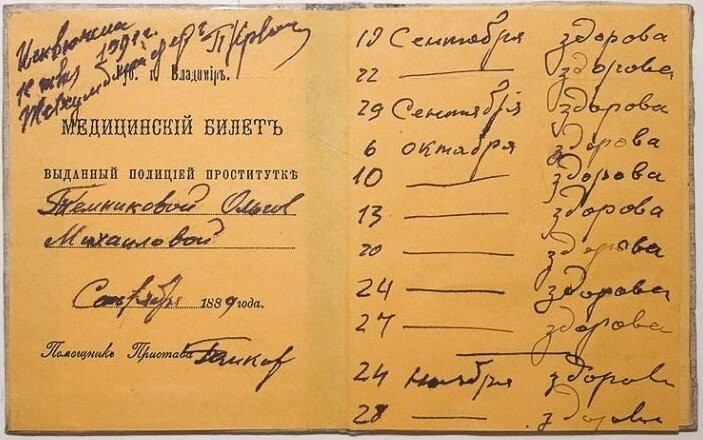 Губ. г. Владиміръ.
МЕДИЦИНСКІЙ БИЛЕТЪ
ВЫДАННЫЙ ПОЛИЦІЕЙ ПРОСТИТУТКѢ
Темниковой Ольге
Михаиловой
1889 года.
Помощникъ Пристава
19 Сентября здорова
22 — здорова
29 Сентября здорова
6 октября здорова
10 — здорова
13 — здорова
20 — здорова
24 — здорова
27 — здорова
24 ноября здорова
28 — здорова